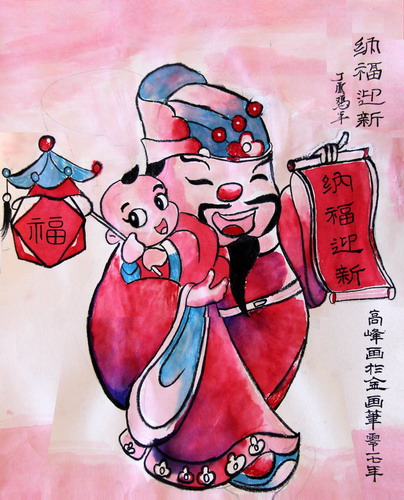 纳福迎新
丁酉鸡年
福
纳福迎新
高峰画於金画筆零一七年